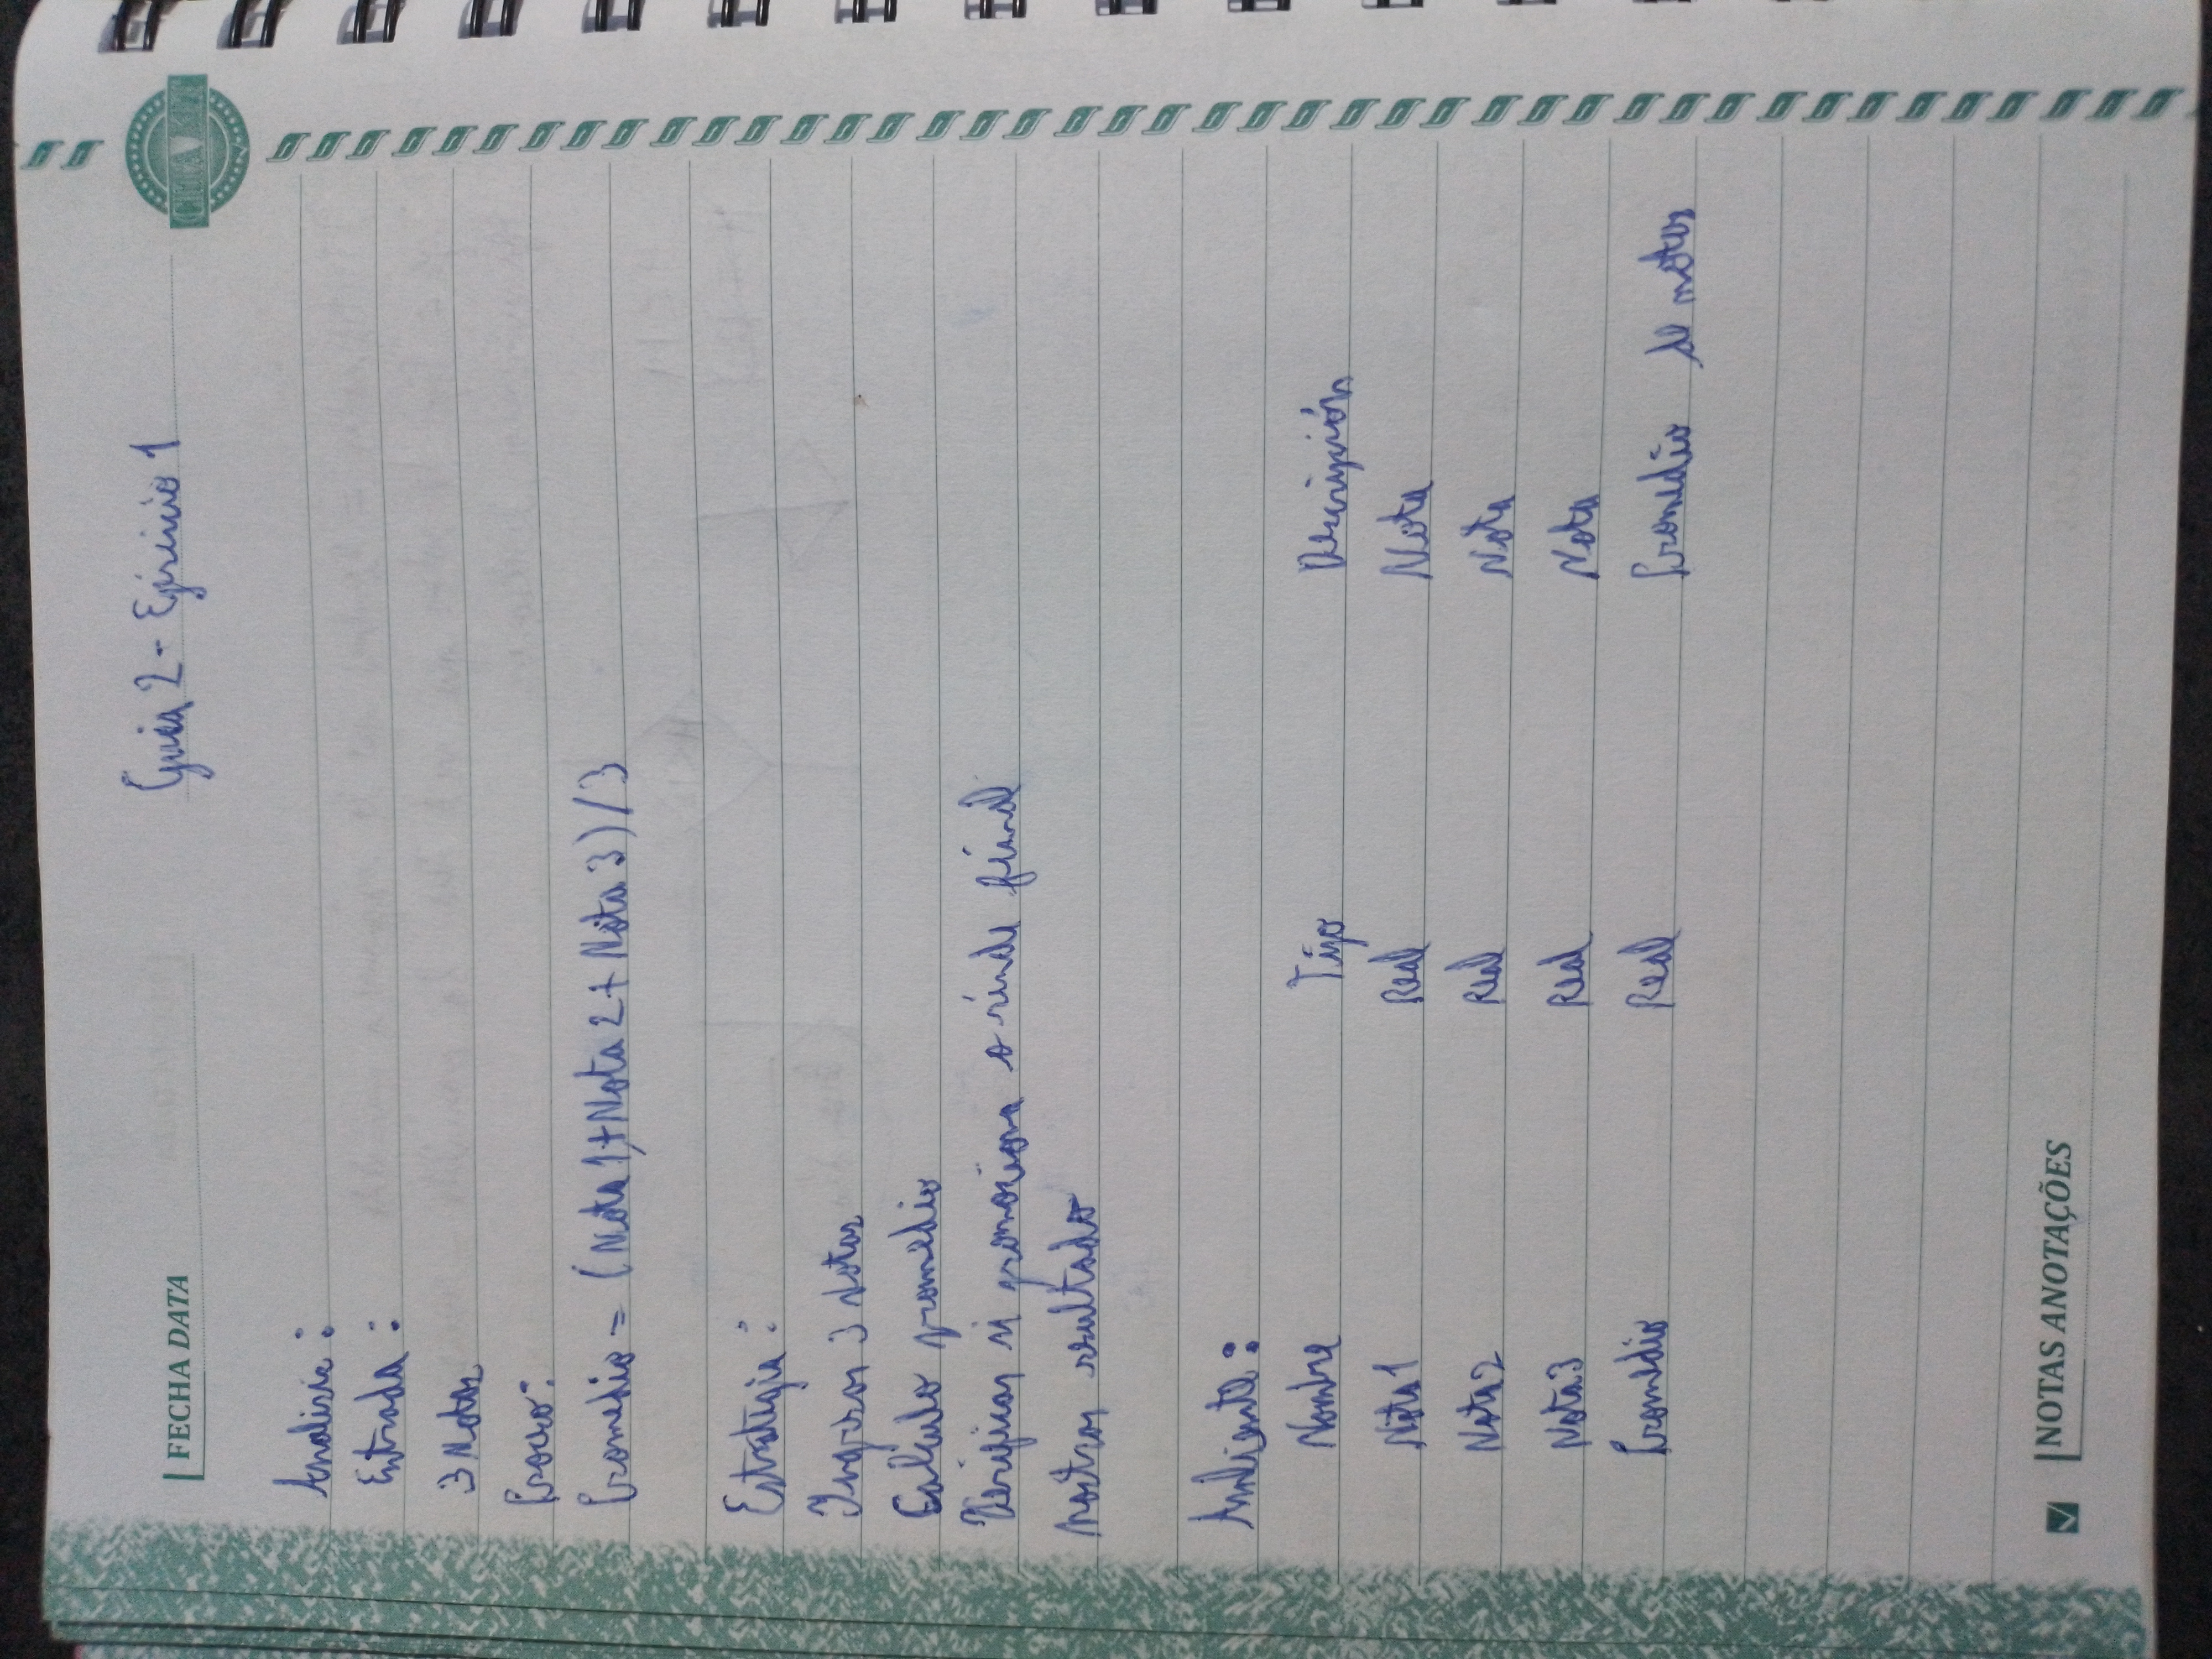 FECHA DATA
Guia 2 - Ejercicio 1
Analisis :
Entrada :
3 Notas
Proceso :
Promedio = (Nota 1 + Nota 2 + Nota 3) / 3
Estrategia :
Ingresar 3 Notas
Calculo promedio
Verificar si promociona o rinde final
Mostrar resultado
Ambiente :
Nombre Tipo Descripción
Nota1 Real Nota
Nota2 Real Nota
Nota3 Real Nota
Promedio Real Promedio de notas
NOTAS ANOTAÇÕES